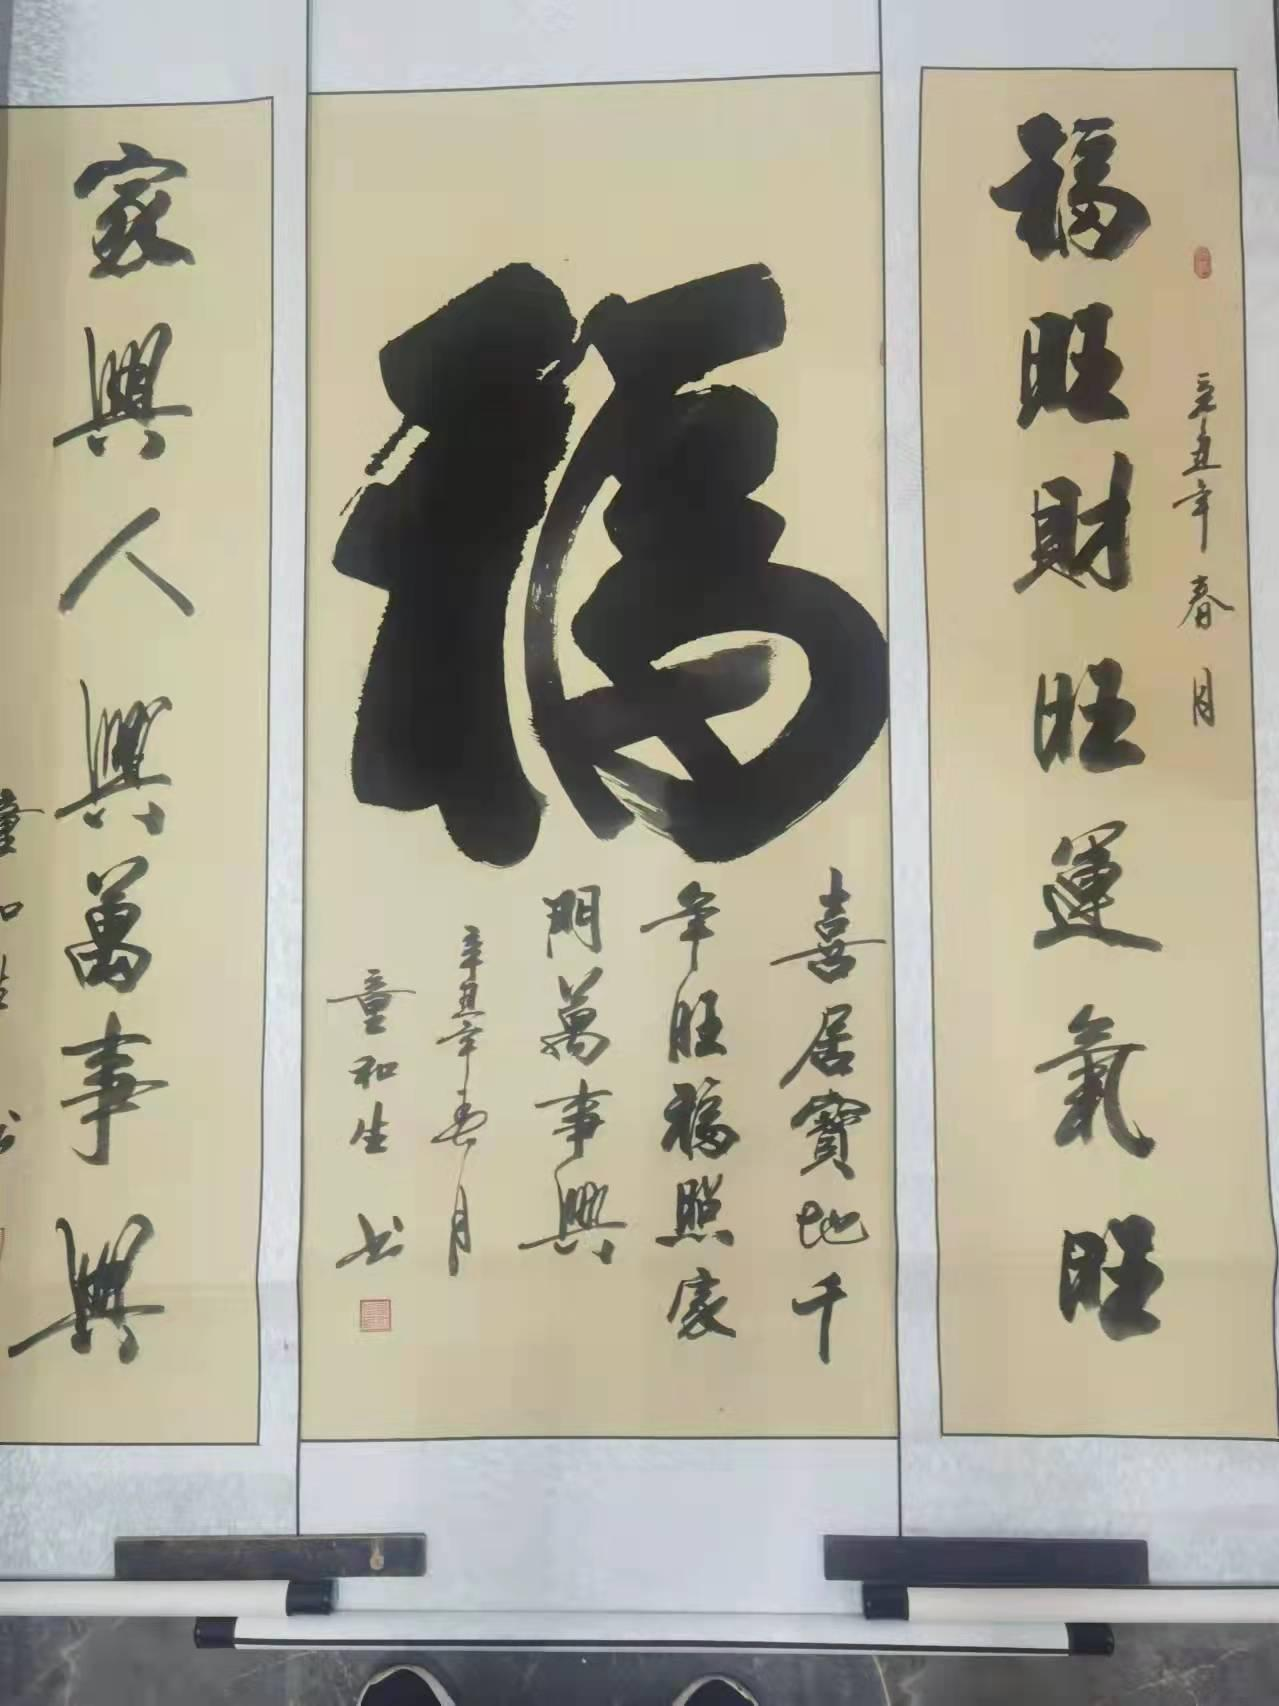 福旺財旺運氣旺
辛丑年春月
福
喜居寶地千
年旺福照家
門萬事興
辛丑年春月
童和生书
家興人興萬事興
童和生书